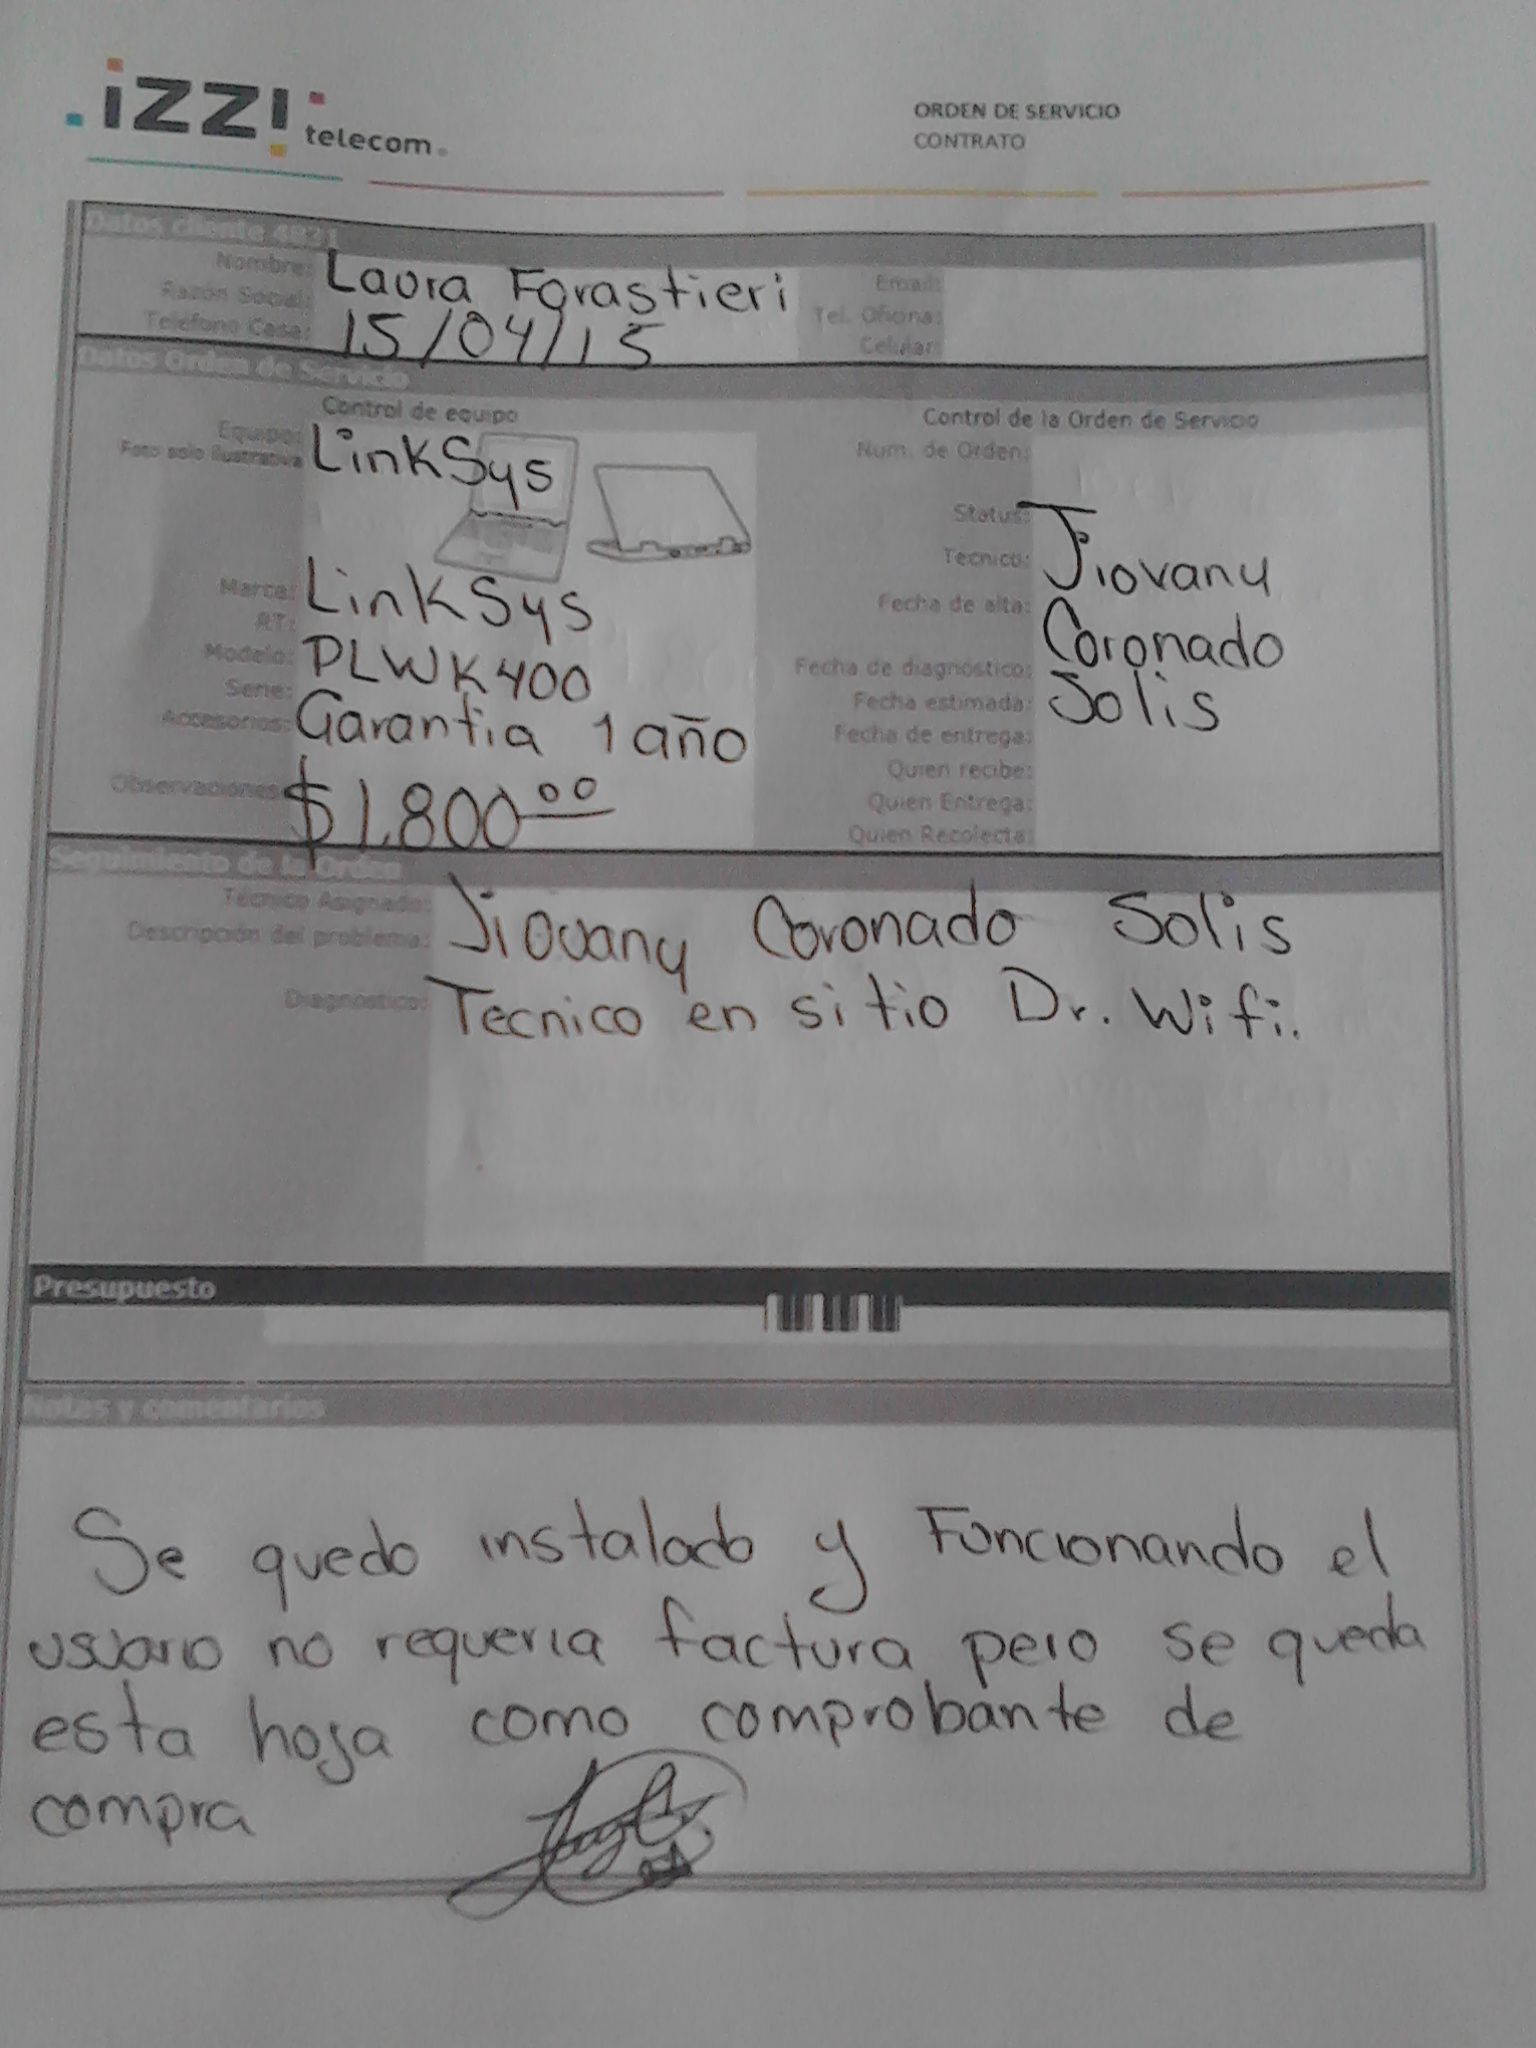 izzi telecom
ORDEN DE SERVICIO
CONTRATO
Datos cliente 4821
Nombre: Laura Forastieri
Razón Social:
Teléfono Casa: 15/04/15
Email:
Tel. Oficina:
Celular:
Datos Orden de Servicio
Control de equipo
Equipo: LinkSys
Foto solo ilustrativa
Marca: LinkSys
RT:
Modelo: PLWK400
Serie:
Accesorios: Garantia 1 año
Observaciones: $1,800.00
Control de la Orden de Servicio
Num. de Orden:
Status:
Tecnico: Jiovany
Fecha de alta: Coronado
Fecha de diagnóstico:
Fecha estimada: Solis
Fecha de entrega:
Quien recibe:
Quien Entrega:
Quien Recolecta:
Seguimiento de la Orden
Tecnico Asignado: Jiovany Coronado Solis
Descripción del problema:
Diagnóstico: Tecnico en sitio Dr. Wifi.
Presupuesto
Notas y comentarios
Se quedo instalado y Funcionando el
usuario no requeria factura pero se queda
esta hoja como comprobante de
compra